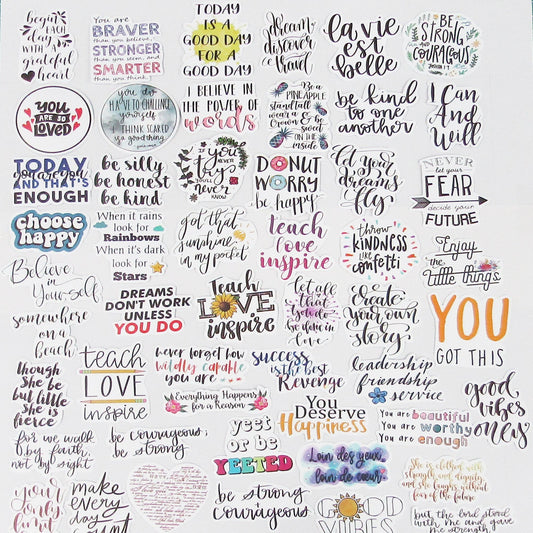 begin
each
day
with a
grateful
heart
You are
BRAVER
than you believe,
STRONGER
than you seem, and
SMARTER
than you think.
TODAY
IS A
GOOD DAY
FOR A
GOOD DAY
dream
discover
travel
la vie
est
belle
BE
STRONG
and
COURAGEOUS
JOSHUA 1:9
YOU
ARE SO
LOVED
you do
HAVE TO CHALLENGE
yourself
THINK SCARED
is a good thing
I BELIEVE IN
THE POWER OF
words
Be a
PINEAPPLE
stand tall
wear a
crown &
be
sweet
on the
inside
be kind
to one
another
I Can
And
Will
TODAY
you are you
AND THAT'S
ENOUGH
be silly
be honest
be kind
if you
NEVER
try
you'll
never
KNOW
DONUT
WORRY
be happy
let your
dreams
fly
NEVER
let your
FEAR
decide your
FUTURE
choose
happy
When it rains
look for
Rainbows
When it's dark
look for
Stars
got that
sunshine
in my pocket
teach
love
inspire
throw
KINDNESS
LIKE
confetti
Enjoy
the
little things
Believe
in
Yourself
somewhere
on a
beach
DREAMS
DON'T WORK
UNLESS
YOU DO
Teach
LOVE
inspire
let all
that
you do
be done in
love
create
your own
story
YOU
GOT THIS
though
She be
but little
She is
fierce
teach
LOVE
inspire
never forget how
wildly capable
you are
success
is the best
Revenge
leadership
friendship
service
good
vibes
only
Everything Happens
for a Reason
You
Deserve
Happiness
You are beautiful
You are worthy
You are enough
for we walk
by faith,
not by sight
be courageous;
be strong
yeet
or be
YEETED
Loin des yeux,
loin du cœur.
She is clothed with
strength and dignity
and she laughs without
fear of the future
your
only
limit
make
every
day
count
be strong
+
courageous
GOOD
VIBES
but the Lord stood
with me and gave
me strength.